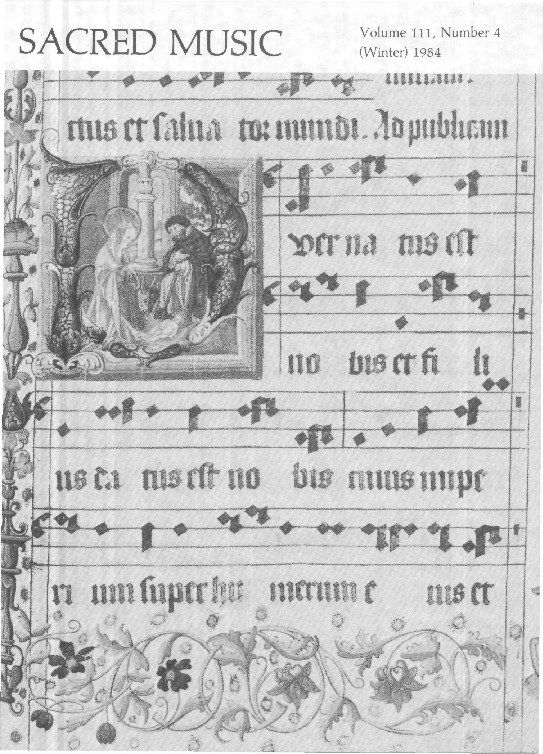 SACRED MUSIC
Volume 111, Number 4
(Winter) 1984
ctus et salua tor mundi. Ad publicam
P
uer na tus est
no bis et fi li
us da tus est no bis cuius impe
ri um super hu merum e ius et